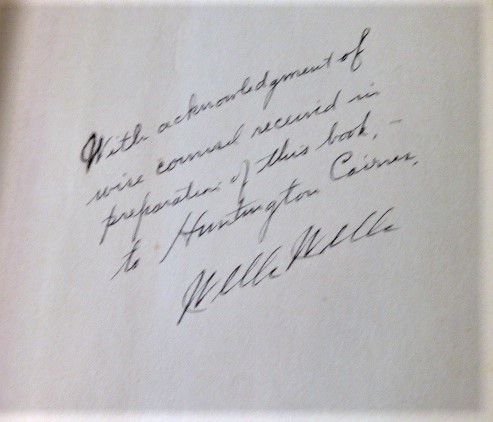 With acknowledgment of
wise counsel received in
preparation of this book, –
to Huntington Cairns,
Wells Wells